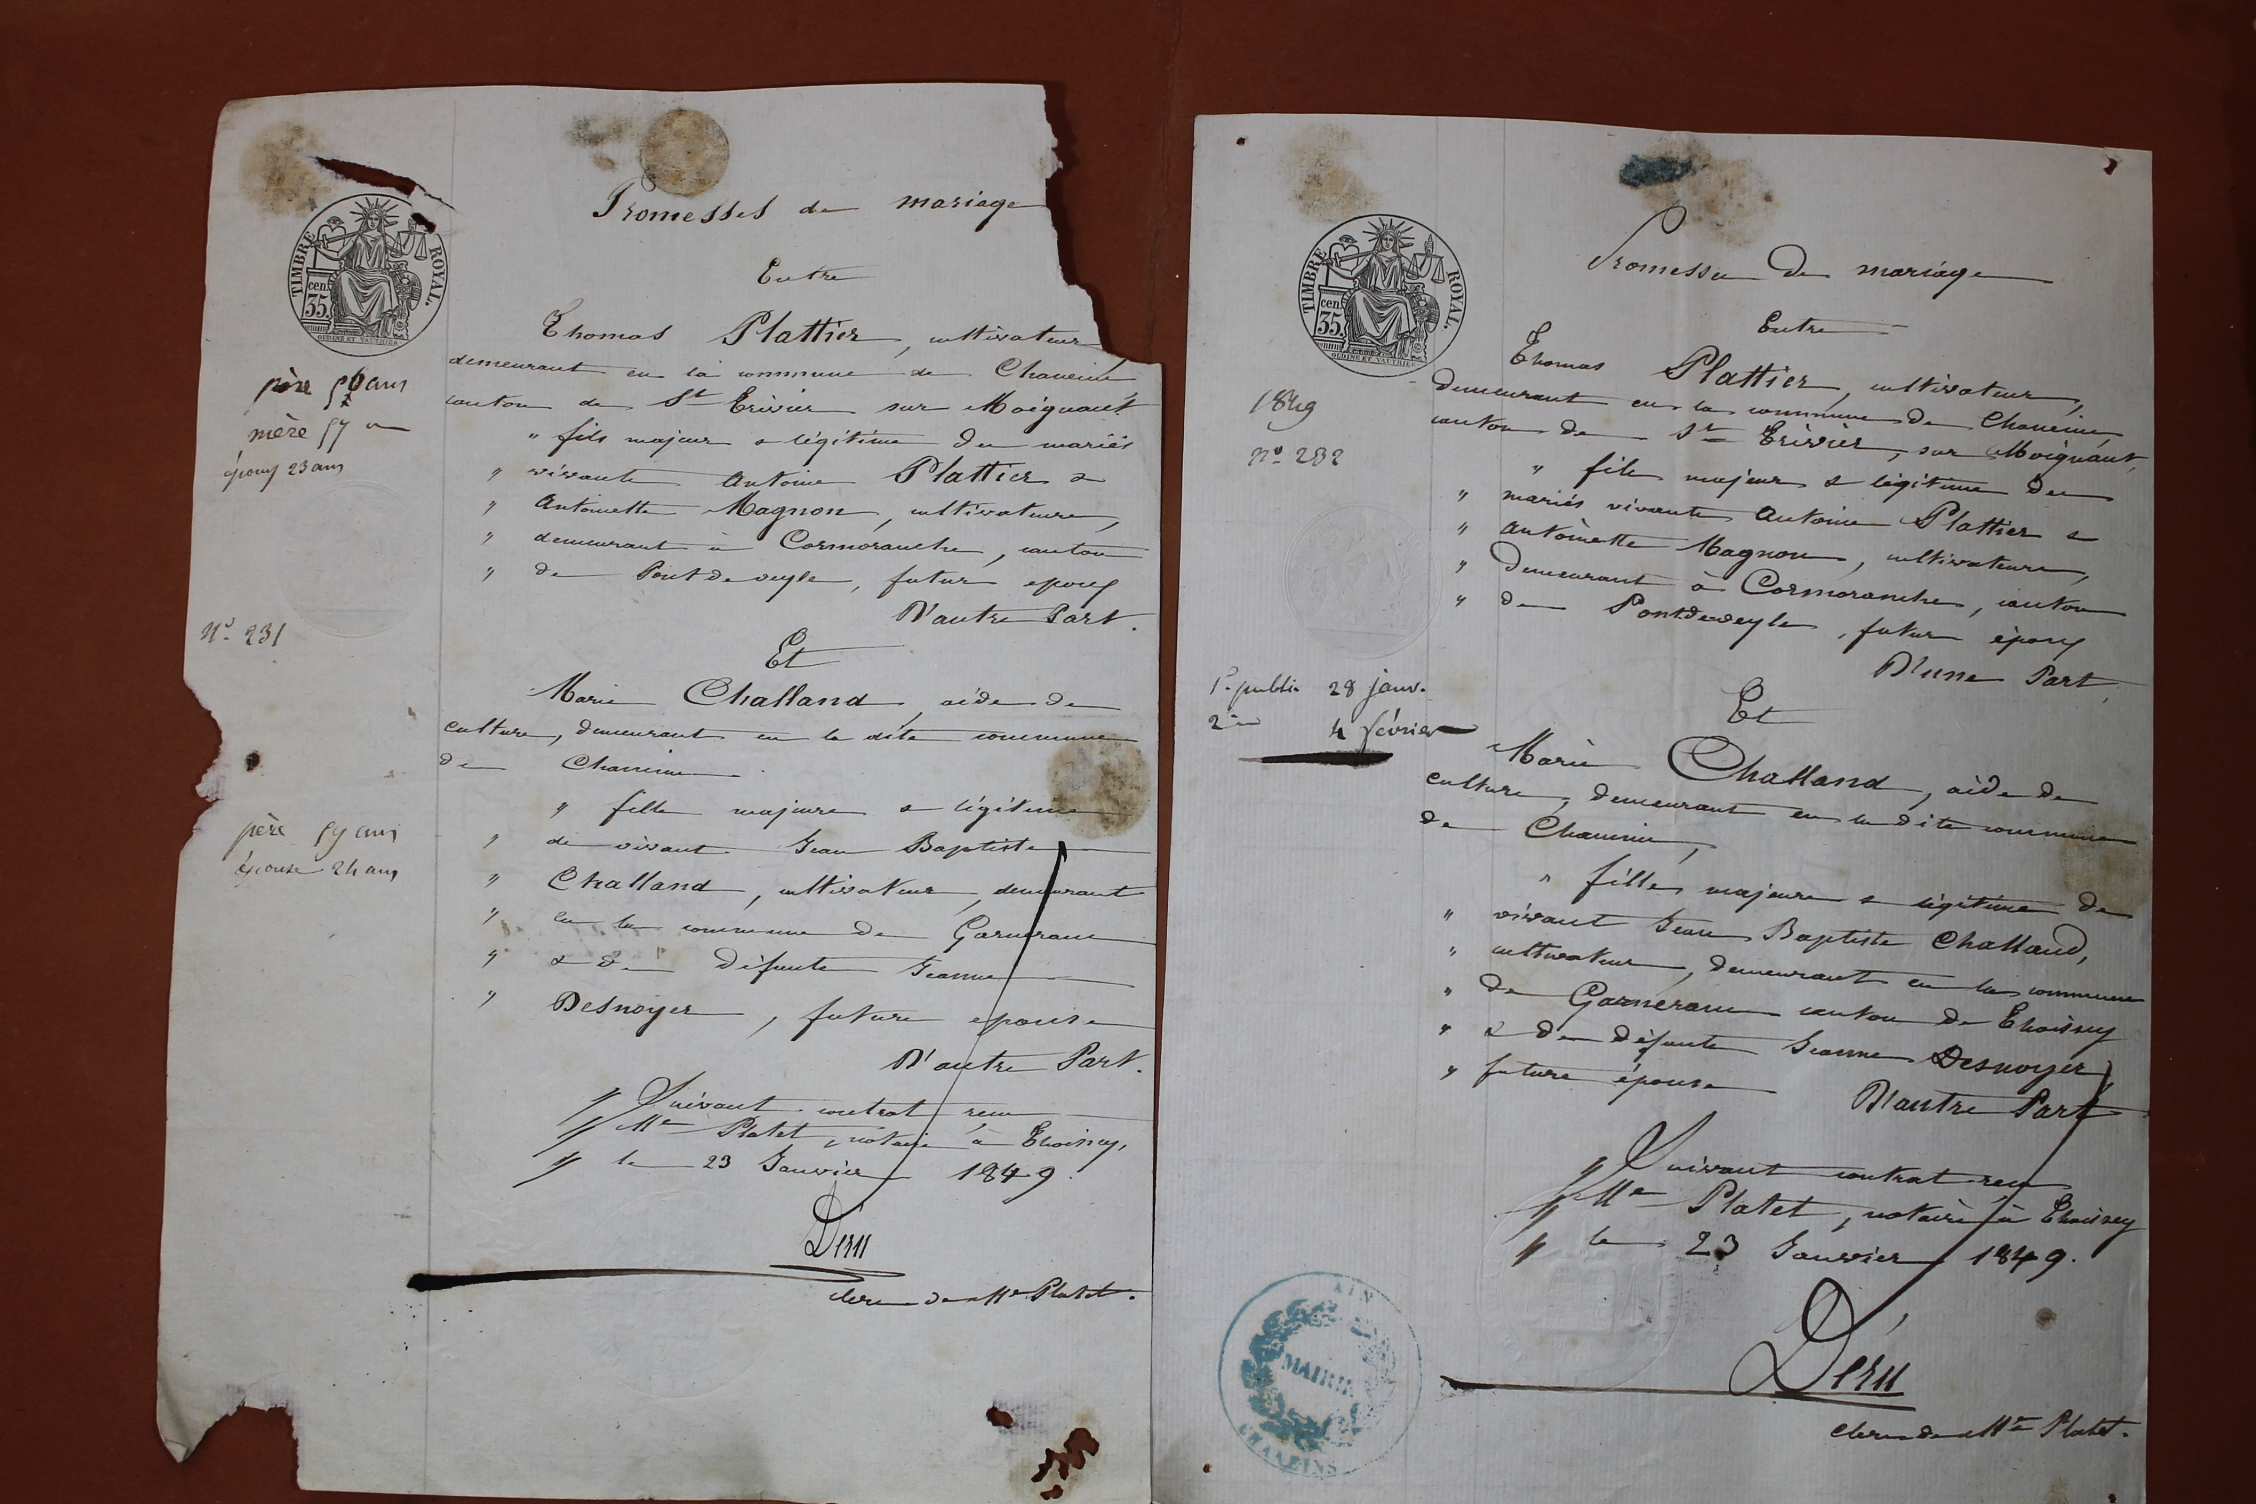 Promesses de mariage
Entre
TIMBRE ROYAL.
cen. 35.
OUDINE ET VAUTHIER
Thomas Plattier, cultivateur
demeurant en la commune de Chaneins
canton de St Trivier sur Moignant
" fils majeur & légitime des mariés
" vivants Antoine Plattier &
" Antoinette Magnon, cultivateurs,
" demeurant à Cormoranche, canton
" de Pont de veyle, futur epoux
D'autre Part.
père 56 ans
mère 57 "
époux 23 ans
No. 231
Et
Marie Challand, aide de
culture, demeurant en la dite commune
de Chaneins
" fille majeure & légitime
" de vivant Jean Baptiste
" Challand, cultivateur, demeurant
" en la commune de Garnerans
" & de défunte Jeanne
" Desnoyer, future epouse
D'autre Part.
père 59 ans
épouse 24 ans
" Suivant contrat reçu
" Me Platet, notaire à Thoissey,
" le 23 Janvier 1849.
Déru
clerc de Me Platet.
Promesses de mariage
Entre
TIMBRE ROYAL.
cen. 35.
OUDINE ET VAUTHIER
Thomas Plattier, cultivateur,
demeurant en la commune de Chaneins,
canton de St Trivier, sur Moignant,
" fils majeur & légitime des
" mariés vivants Antoine Plattier &
" Antoinette Magnon, cultivateurs,
" demeurant à Cormoranche, canton
" de Pont-de-veyle, futur époux
D'une Part,
1849
No. 232
1e. public. 28 janv.
2me 4 février
Et
Marie Challand, aide de
culture, demeurant en la dite commune
de Chaneins,
" fille majeure & légitime de
" vivant Jean Baptiste Challand,
" cultivateur, demeurant en la commune
" de Garnerans canton de Thoissey
" & de défunte Jeanne Desnoyer,
" future épouse
D'autre Part
" Suivant contrat reçu
" Me Platet, notaire à Thoissey
" le 23 Janvier 1849.
Déru
clerc de Me Platet.
AIN
MAIRIE
CHANEINS